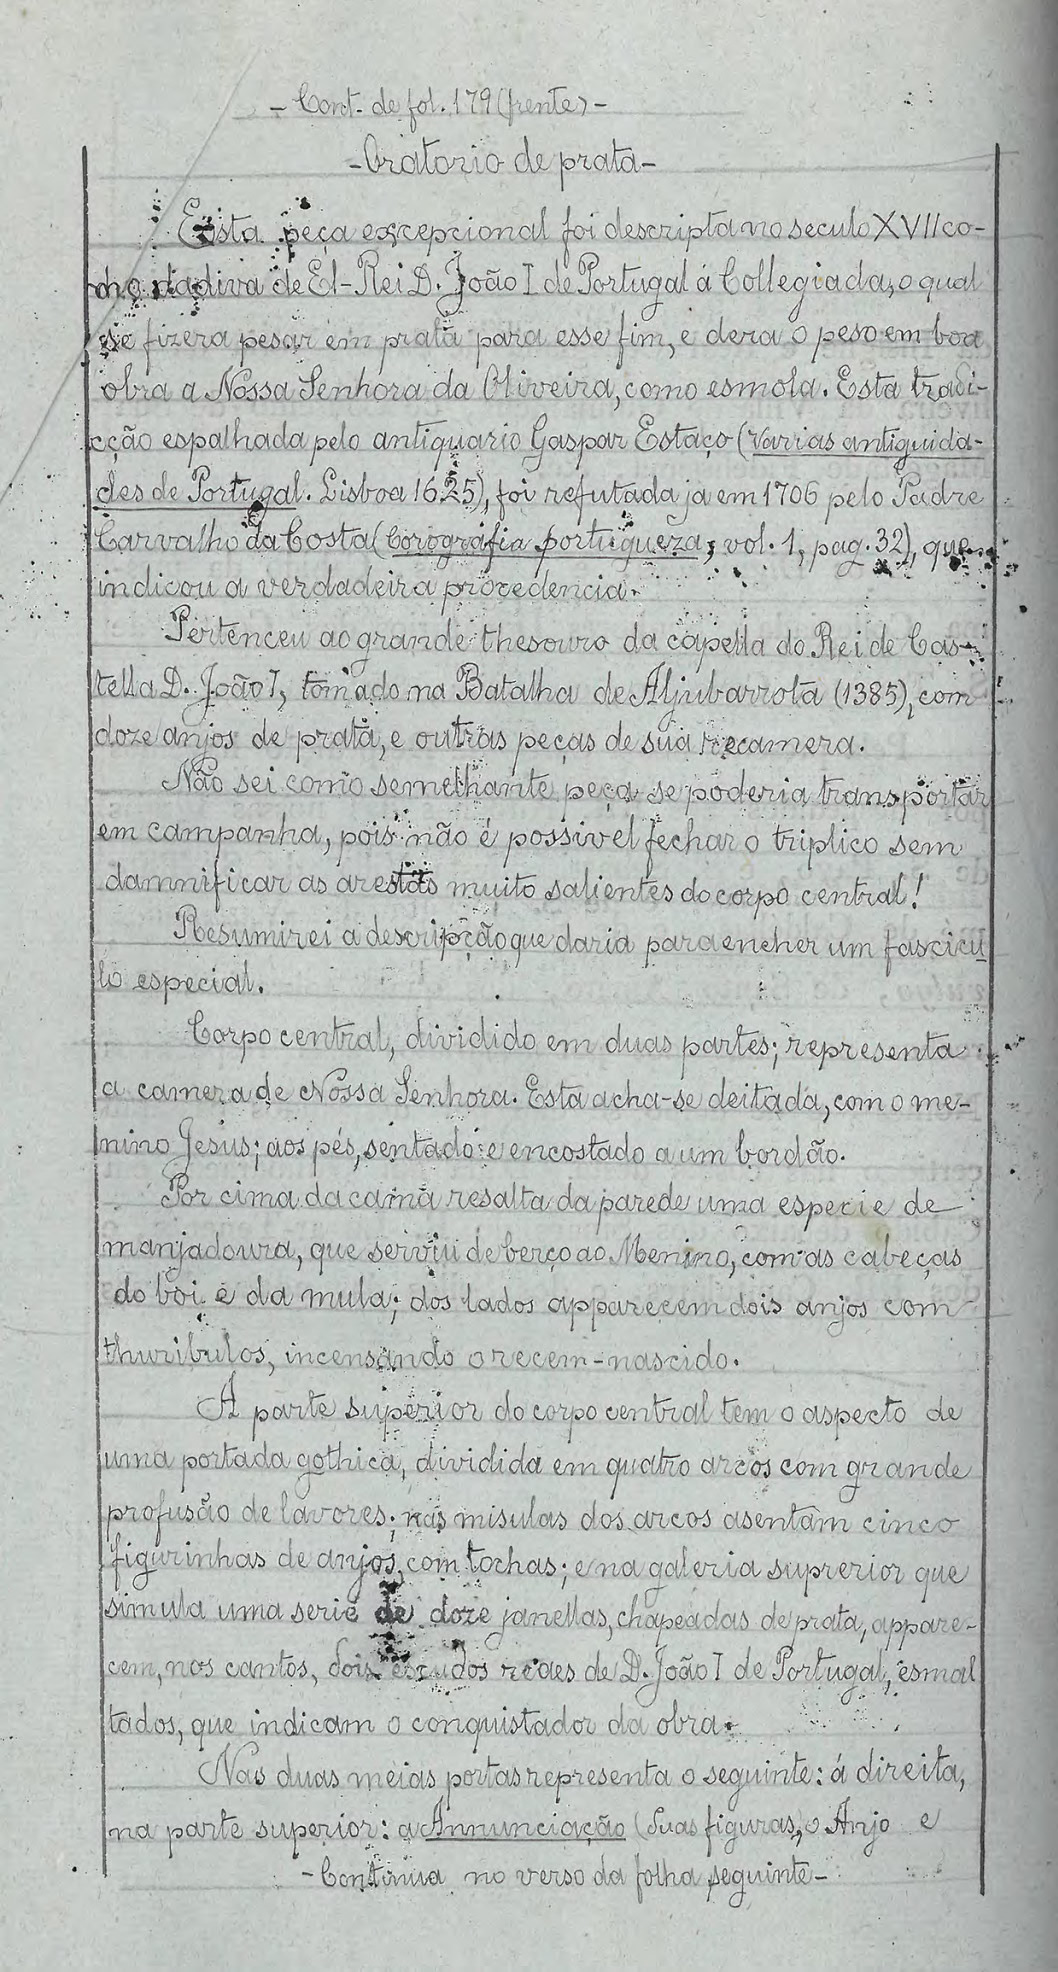 - Cont. de fol. 179 (frente) -
- Oratorio de prata -
Esta peça excepcional foi descripta no seculo XVII co-
mo dadiva de El-Rei D. João I de Portugal á Collegiada, o qual
se fizera pesar em prata para esse fim, e dera o peso em boa
obra a Nossa Senhora da Oliveira, como esmola. Esta tradi-
cção espalhada pelo antiquario Gaspar Estaço (Varias antiguida-
des de Portugal. Lisboa 1625), foi refutada ja em 1706 pelo Padre
Carvalho da Costa (Corografia portugueza, vol. 1, pag. 32), que
indicou a verdadeira procedencia.
Pertenceu ao grande thesouro da capella do Rei de Cas-
tella D. João I, tomado na Batalha de Aljubarrota (1385), com
doze anjos de prata, e outras peças de sua recamera.
Não sei como semelhante peça se poderia transportar
em campanha, pois não é possivel fechar o triplico sem
damnificar as arestas muito salientes do corpo central!
Resumirei a descripção que daria para encher um fascicu
lo especial.
Corpo central, dividido em duas partes; representa
a camera de Nossa Senhora. Esta acha-se deitada, com o me-
nino Jesus; aos pés, sentado e encostado a um bordão.
Por cima da cama resalta da parede uma especie de
manjadoura, que serviu de berço ao Menino, com as cabeças
do boi e da mula; dos lados apparecem dois anjos com
thuribulos, incensando o recem-nascido.
A parte superior do corpo central tem o aspecto de
uma portada gothica, dividida em quatro arcos com grande
profusão de lavores; nas misulas dos arcos asentam cinco
figurinhas de anjos, com tochas; e na galeria suprerior que
simula uma serie de doze janellas, chapeadas de prata, appare-
cem, nos cantos, dois escudos reaes de D. João I de Portugal, esmal
tados, que indicam o conquistador da obra.
Nas duas meias portas representa o seguinte: á direita,
na parte superior: a Annunciação (duas figuras, o Anjo e
- Continua no verso da folha seguinte -